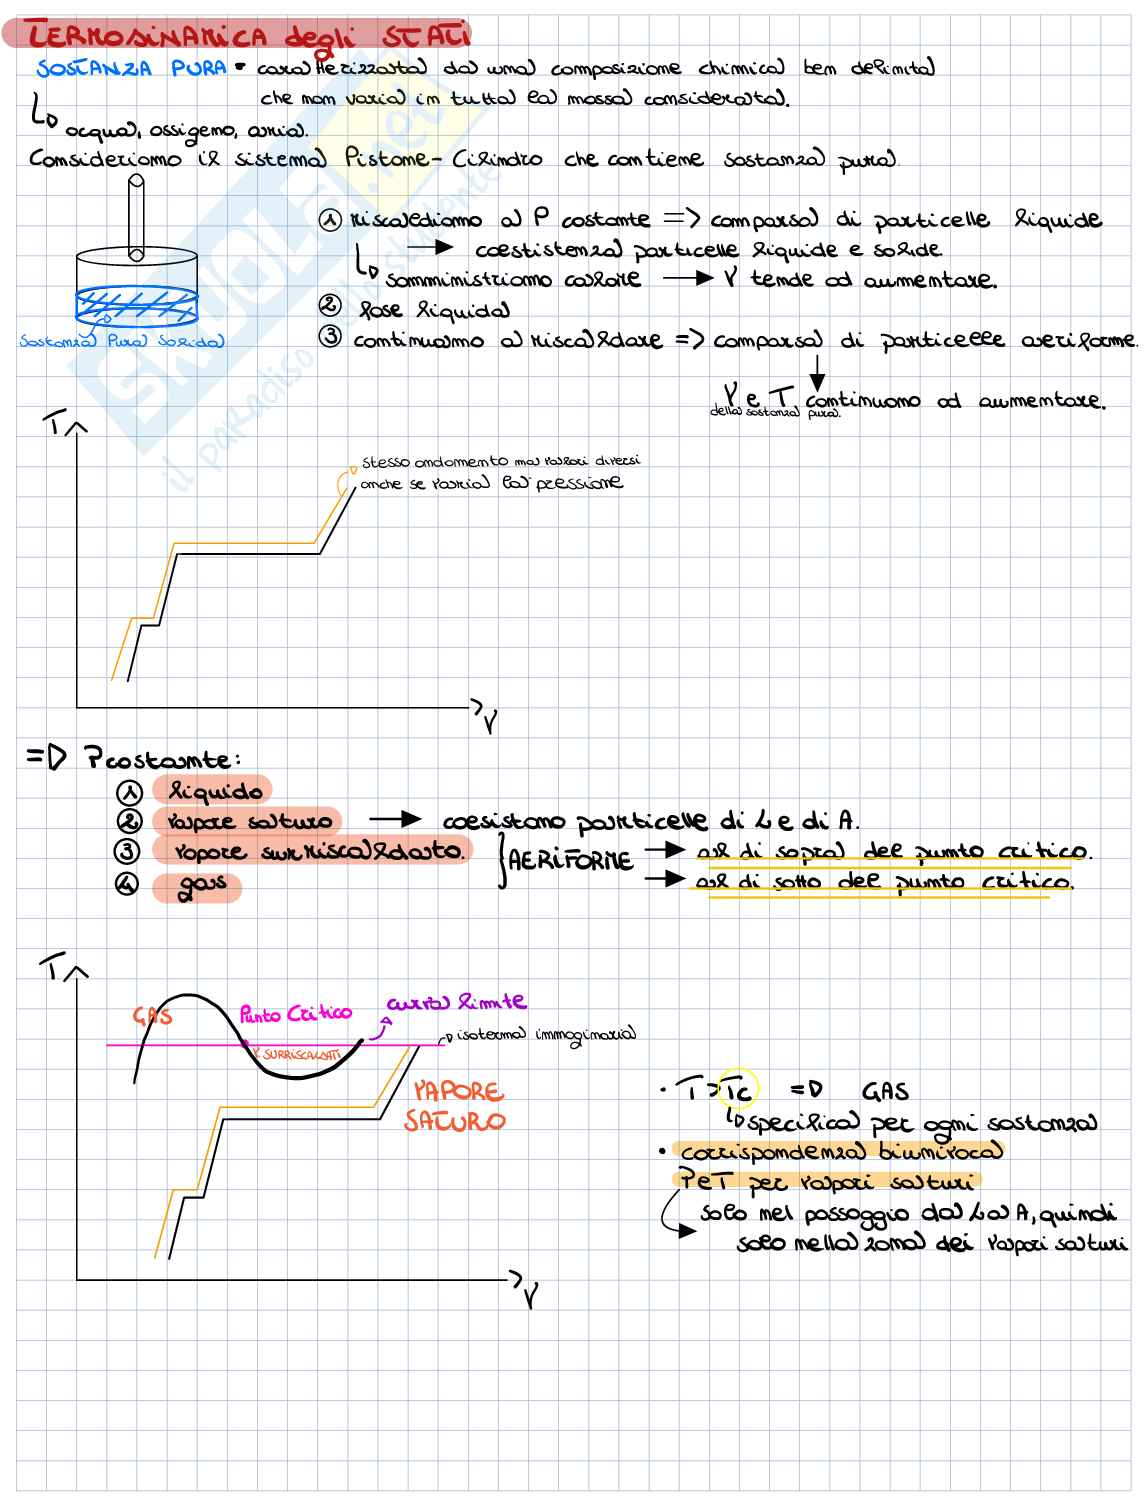 TERMODINAMICA degli STATI
SOSTANZA PURA = caratterizzata da una composizione chimica ben definita
che non varia in tutta la massa considerata.
↳ acqua, ossigeno, aria.
Consideriamo il sistema Pistone-Cilindro che contiene sostanza pura.
① riscaldiamo a P costante => comparsa di particelle liquide
→ coestistenza particelle liquide e solide
↳ somministriamo calore → V tende ad aumentare.
② fase liquida
③ continuamo a riscaldare => comparsa di particelle aeriforme.
Sostanza Pura Solida
V e T continuano ad aumentare.
della sostanza pura.
T
stesso andamento ma valori diversi
anche se varia la pressione
V
=> P costante:
① liquido
② vapore saturo → coesistono particelle di L e di A.
③ vapore surriscaldato. } AERIFORME → al di sopra del punto critico.
④ gas → al di sotto del punto critico.
T
GAS
Punto Critico
curva limite
isoterma immaginaria
V SURRISCALDATI
VAPORE
SATURO
V
• T > Tc => GAS
↳ specifica per ogni sostanza
• corrispondenza biunivoca
P e T per vapori saturi
solo nel passaggio da L a A, quindi
solo nella zona dei vapori saturi
SKUOLA.net
il paradiso dello studente